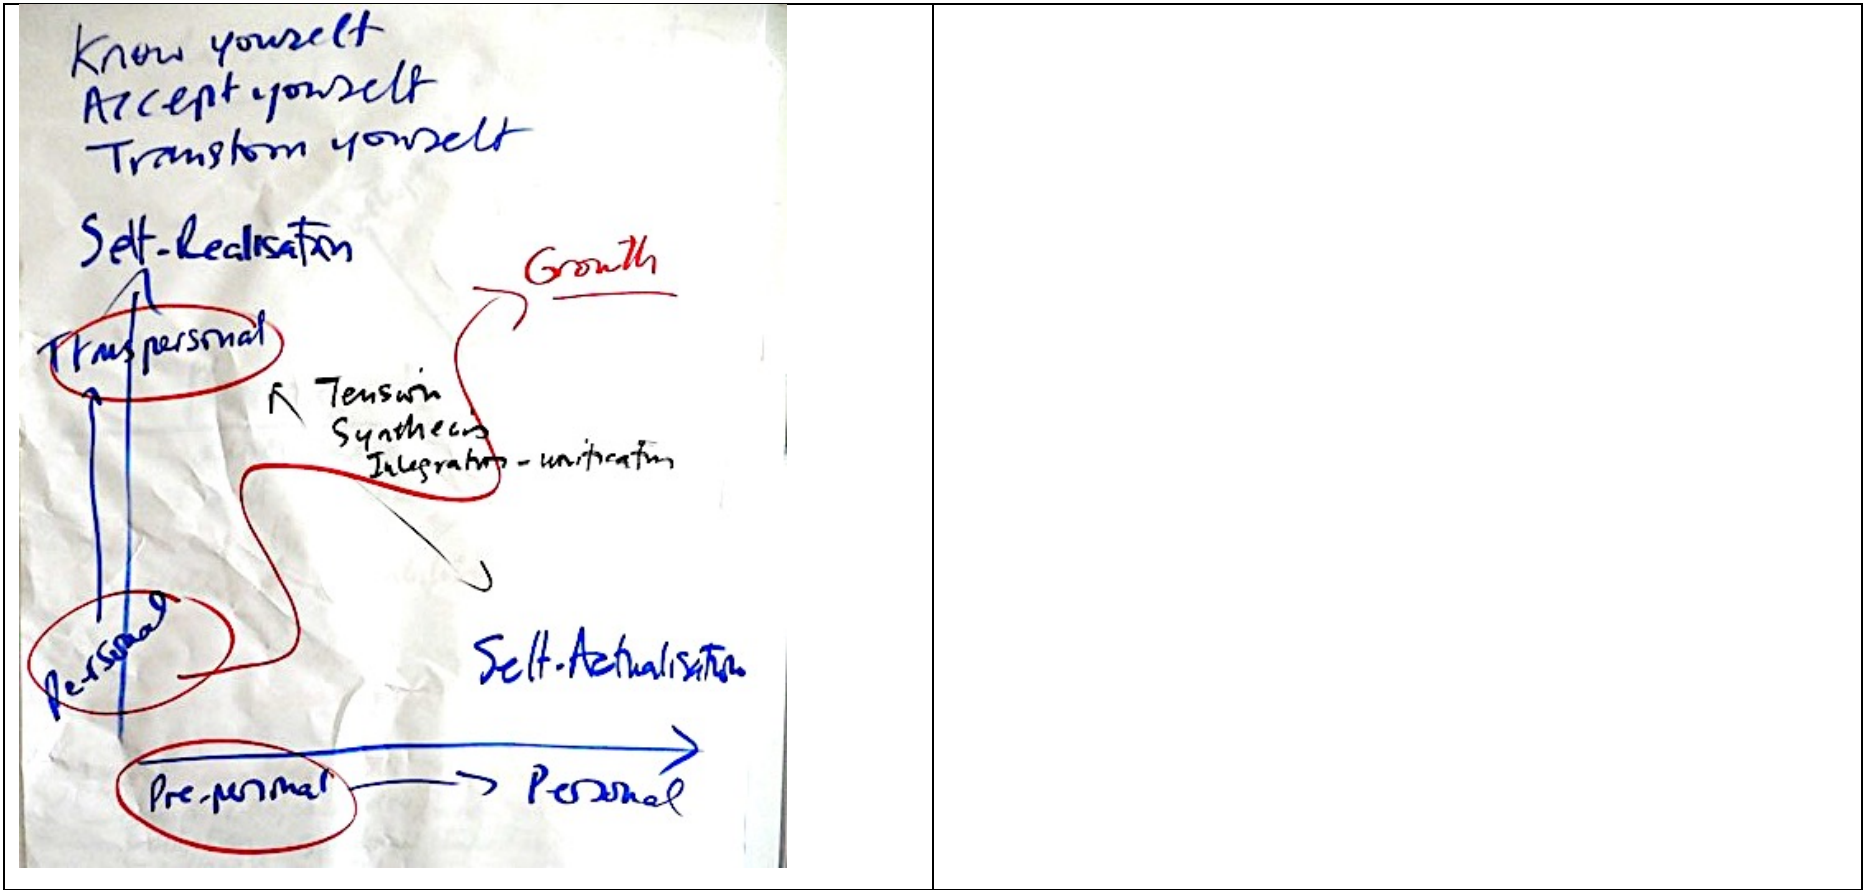 Know yourself
Accept yourself
Transform yourself
Self-Realisation
Growth
Transpersonal
Tension
Synthesis
Integration - unification
Personal
Self-Actualisation
Pre-personal
Personal